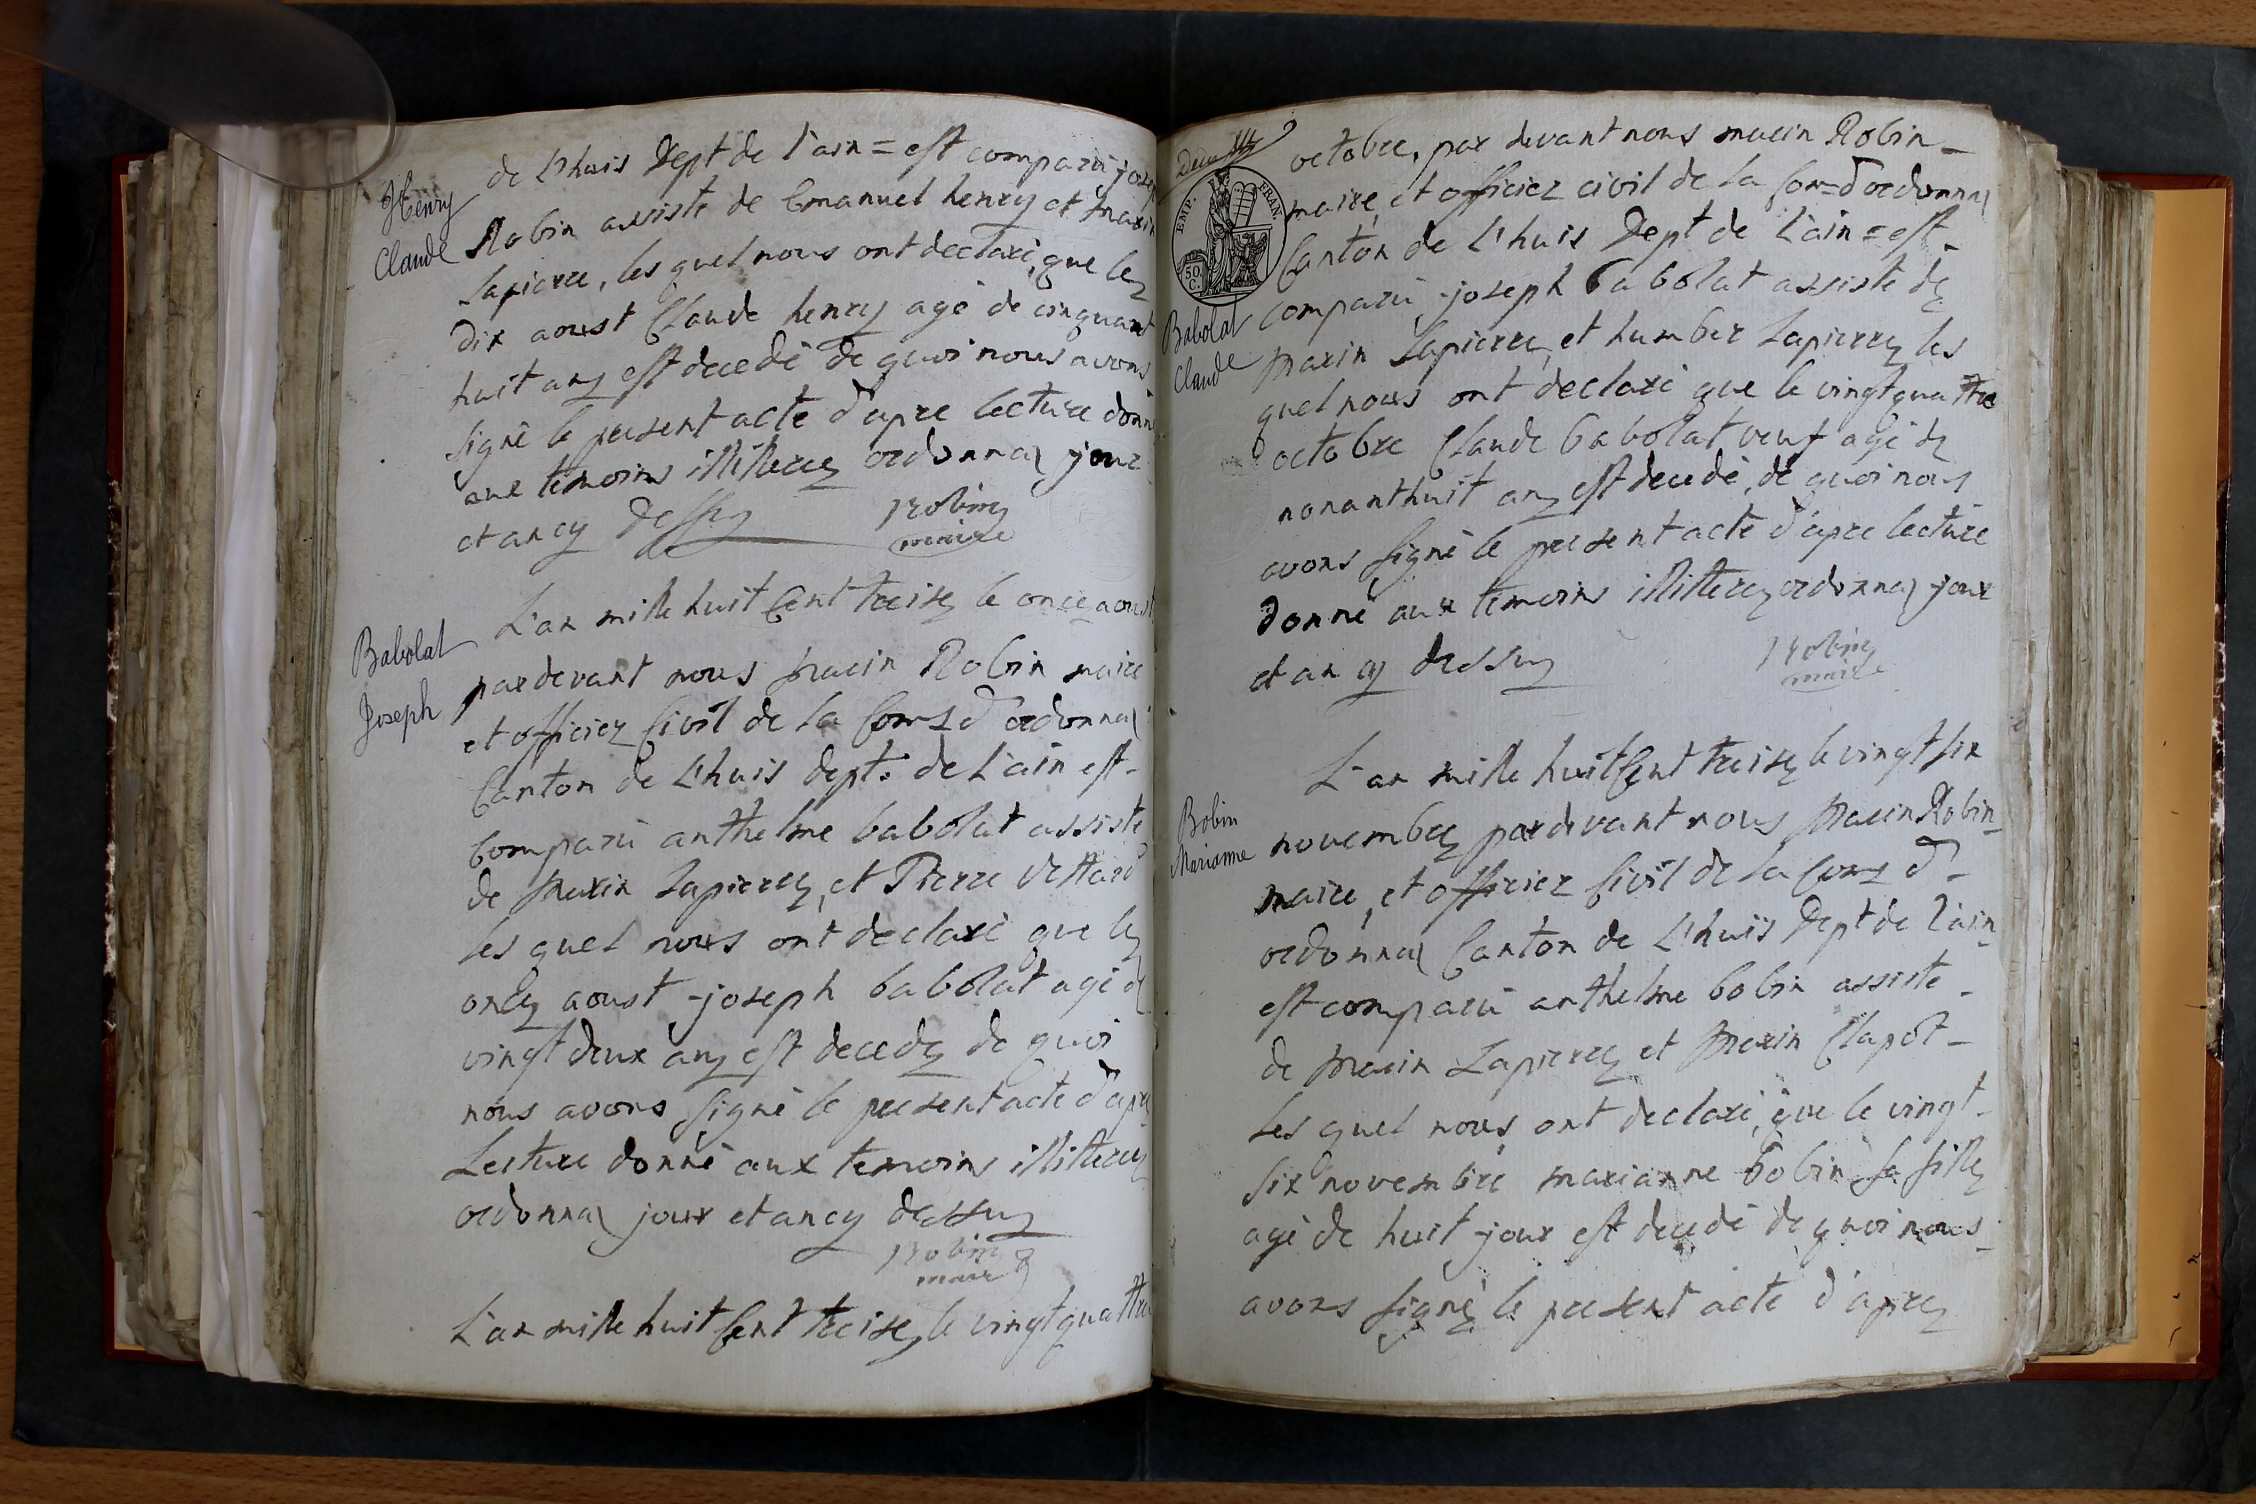 Henry
Claude
de L'huis Dept de l'ain = est comparu josep
Robin assisté de Emanuel henry et marin
Lapierre, les quel nous ont declaré, que le
dix aoust Claude henry agé de cinquant
huit ans est decedé de quoi nous avons
signé le present acte d'apre lecture donn
aux temoins illiterez ordonnas jour
et an cy dessus
Robin
maire
Babolat
Joseph
L'an mille huit Cent treise le onze aoust
par devant nous marin Robin maire
et officier Civil de la Com d'ordonnas
Canton de L'huis dept. de L'ain est-
Comparu anthelme babolat assisté
de marin Lapierre, et Pierre Vettard
Les quel nous ont declaré que le
onze aoust joseph babolat agé d
vingt deux ans est decede de quoi
nous avons signé le present acte d'apre
Lecture donné aux temoins illiterez
ordonnas jour et an cy dessus
Robin
maire
L'an mille huit Cent treise, le vingt quattre
EMP. FRAN.
50
C.
Babolat
Claude
octobre, par devant nous marin Robin-
maire, et officier civil de la Com= d'ordonnas
Canton de L'huis Dept de L'ain = est-
comparu, joseph babolat assisté de
marin Lapierre, et humber Lapierre, les
quel nous ont declaré que le vingt quattre
octobre Claude babolat veuf agé de
nonanthuit ans est decedé, de quoi nous
avons signé le present acte d'apre lecture
donné aux temoins illiterez ordonnas jour
et an cy dessus
Robin
maire
Bobin
Marianne
L'an mille huit Cent treise le vingt six
novembre par devant nous marin Robin-
maire, et officier Civil de la Com d'-
ordonnas Canton de L'huis Dept de l'ain-
est comparu anthelme bobin assisté-
de marin Lapierre et marin Clapot-
Les quel nous ont declaré, que le vingt-
six novembre marianne bobin sa fille
agé de huit jour est decedé de quoi nous-
avons signé le present acte d'apre